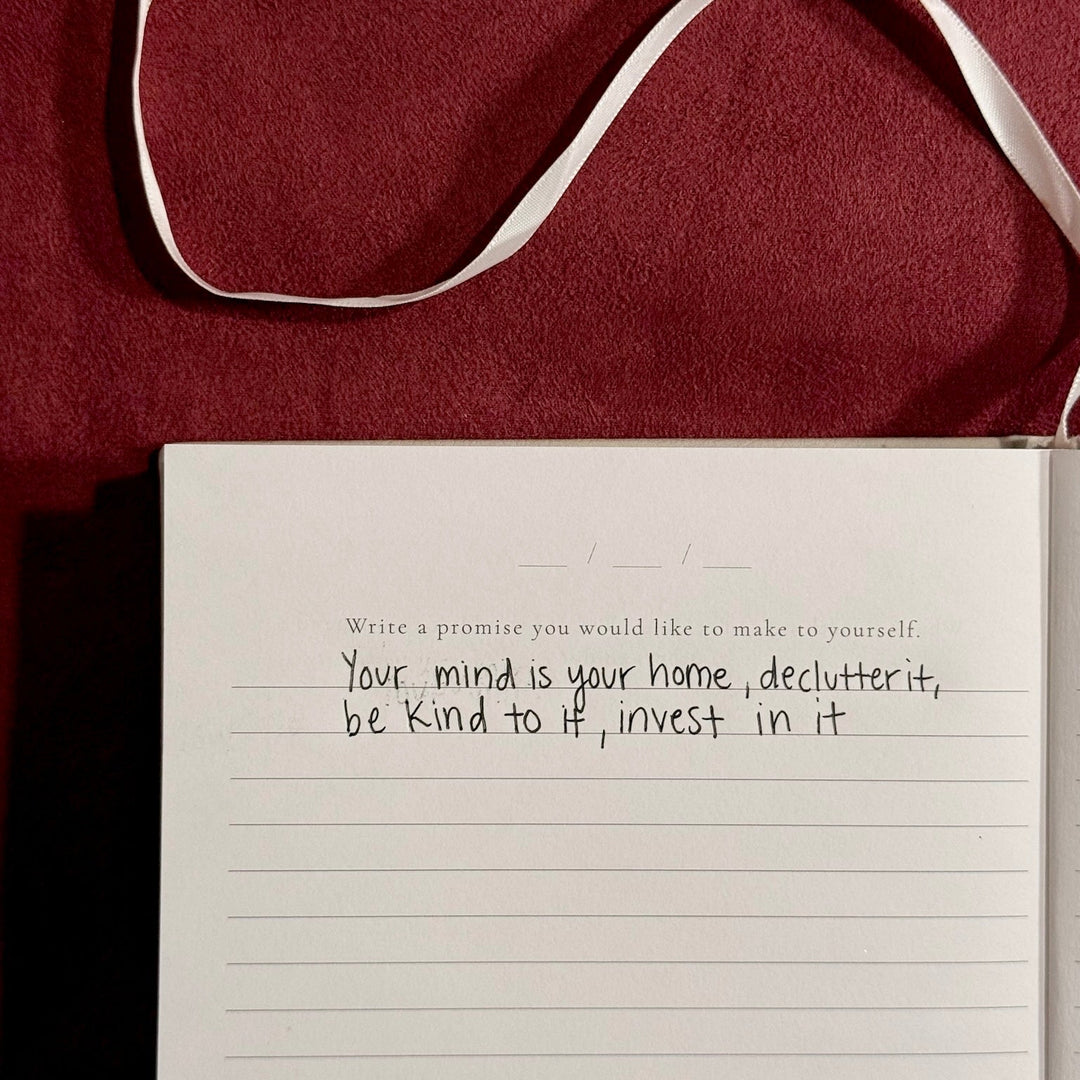 __ / __ / __
Write a promise you would like to make to yourself.
Your mind is your home, declutter it,
be kind to it, invest in it